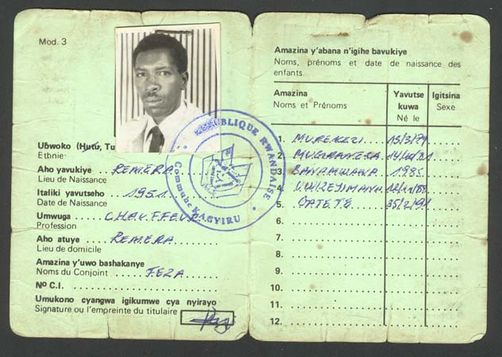 Mod. 3
Ubwoko (Hutu, Tu
Ethnie:
Aho yavukiye REMERA
Lieu de Naissance
Italiki yavutseho 1951
Date de Naissance
Umwuga CHAUFFEUR
Profession
Aho atuye REMERA
Lieu de domicile
Amazina y'uwo bashakanye
Noms du Conjoint FEZA
Nº C.I.
Umukono cyangwa igikumwe cya nyirayo
Signature ou l'empreinte du titulaire
REPUBLIQUE RWANDAISE
Commune KACYIRU
Amazina y'abana n'igihe bavukiye
Noms, prénoms et date de naissance des
enfants.
Amazina Yavutse Igitsina
Noms et Prénoms kuwa Sexe
Né le
1. MURENZI
2.
3. 1985
4.
5. GATETE
6.
7.
8.
9.
10.
11.
12.